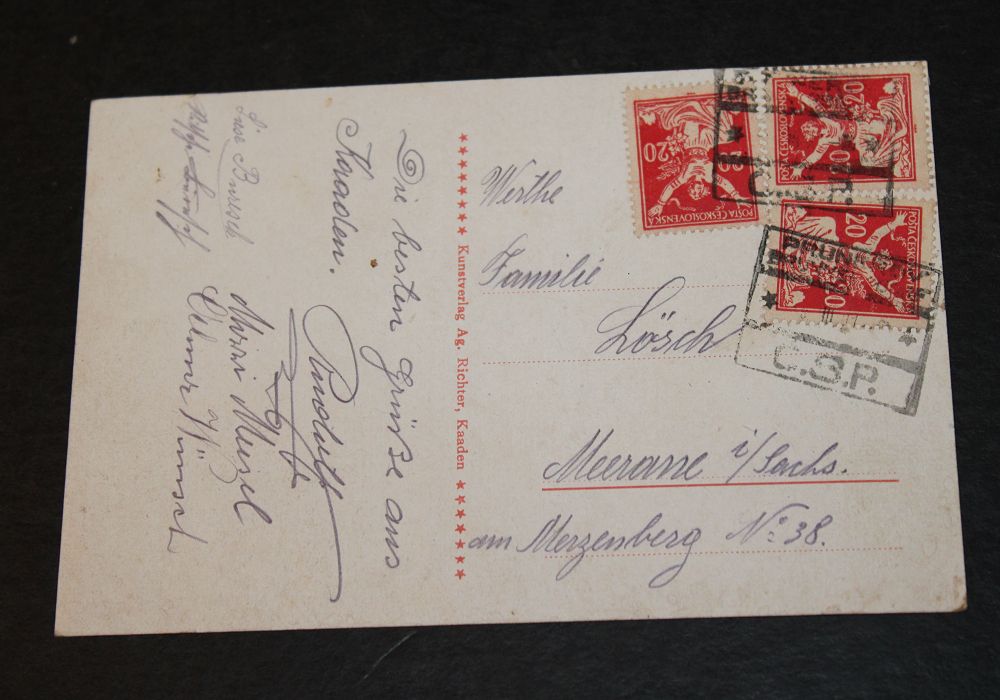 Die besten Grüße aus
Kaaden.
Rudolf
Mirri Meizel
Kunstverlag Ag. Richter, Kaaden
Werthe
Familie
Lösch
Meerane i/Sachs.
am Merzenberg No: 38.
20 20
POŠTA ČESKOSLOVENSKÁ
20 20
POŠTA ČESKOSLOVENSKÁ
20 20
POŠTA ČESKOSLOVENSKÁ
Č.S.P.